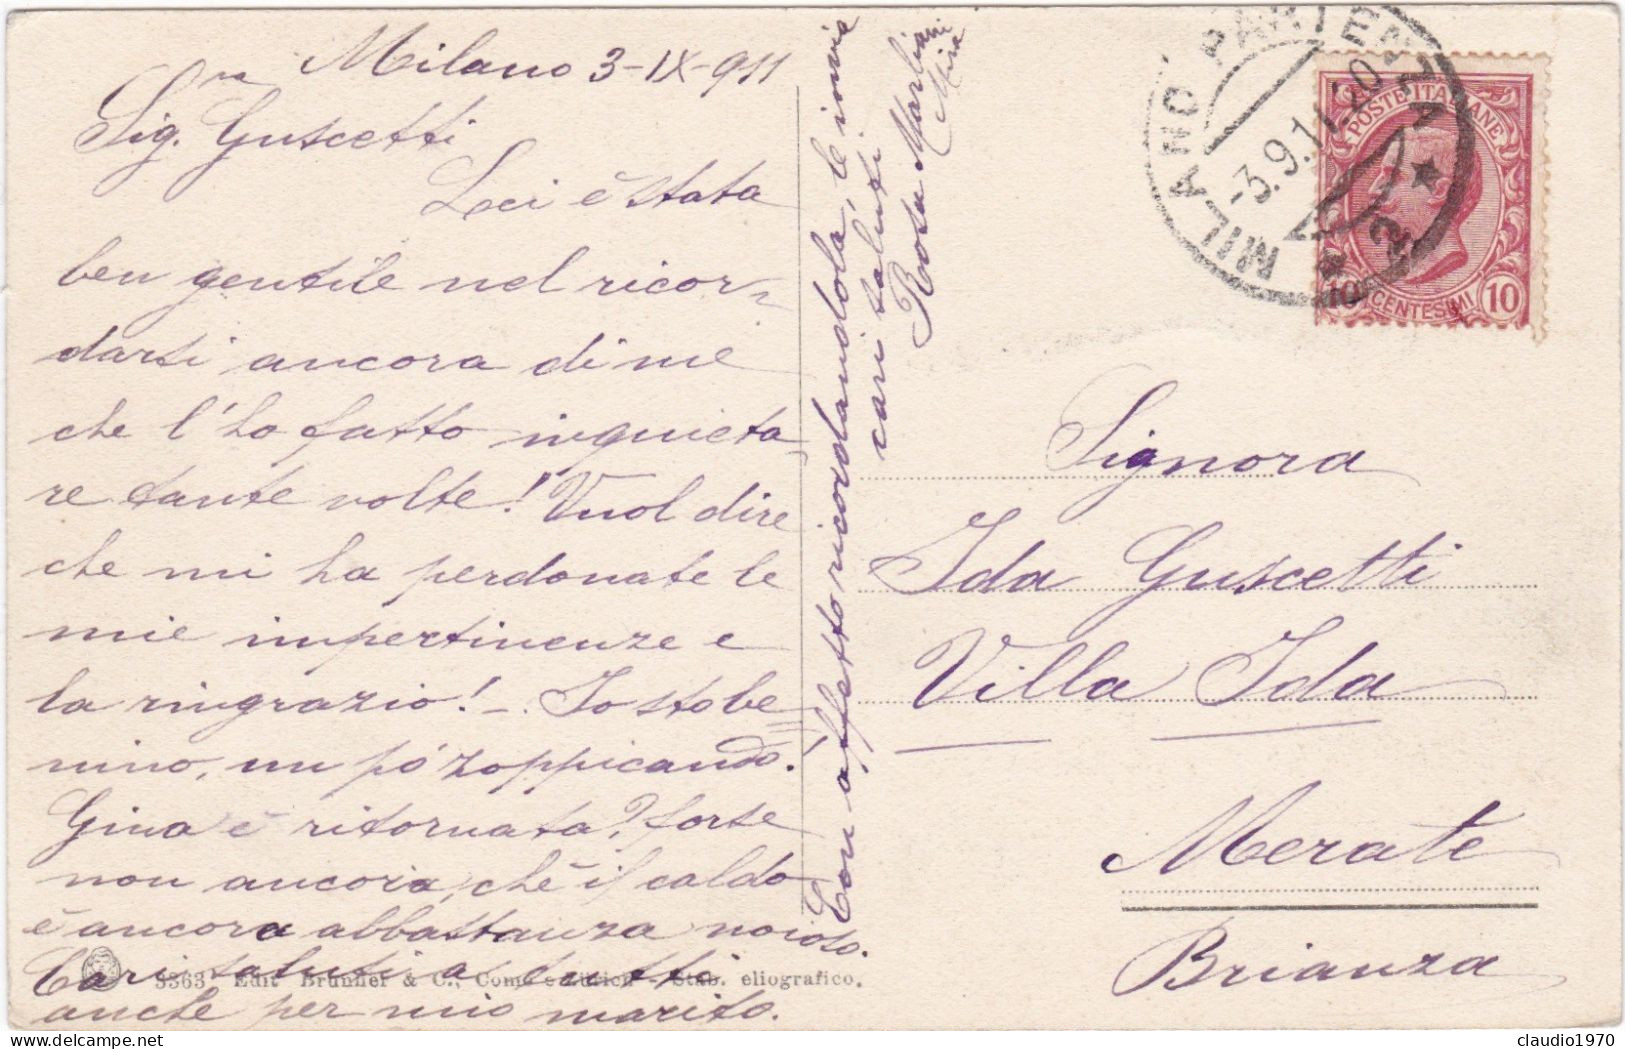 Milano 3-IX-911
Sig.ra Guscetti
Lei è stata
ben gentile nel ricor-
darsi ancora di me
che l'ho fatto inquieta-
re tante volte! Vuol dire
che mi ha perdonate le
mie impertinenze e
la ringrazio! -. Io sto be
nino, un pó zoppicando!
Gina è ritornata? forse
non ancora, chè il caldo
è ancora abbastanza noioso.
Cari saluti a tutti
anche per mio marito.
Con affetto ricordandola, le invia
cari saluti
Rosa Marliani
Mira
3363 Edit Brunner & C., Como e Zürich - Stab. eliografico.
MILANO PARTENZA
-3.9.11.20
POSTE ITALIANE
10 CENTESIMI 10
Signora
Ida Guscetti
Villa Ida
Merate
Brianza
claudio1970
delcampe.net